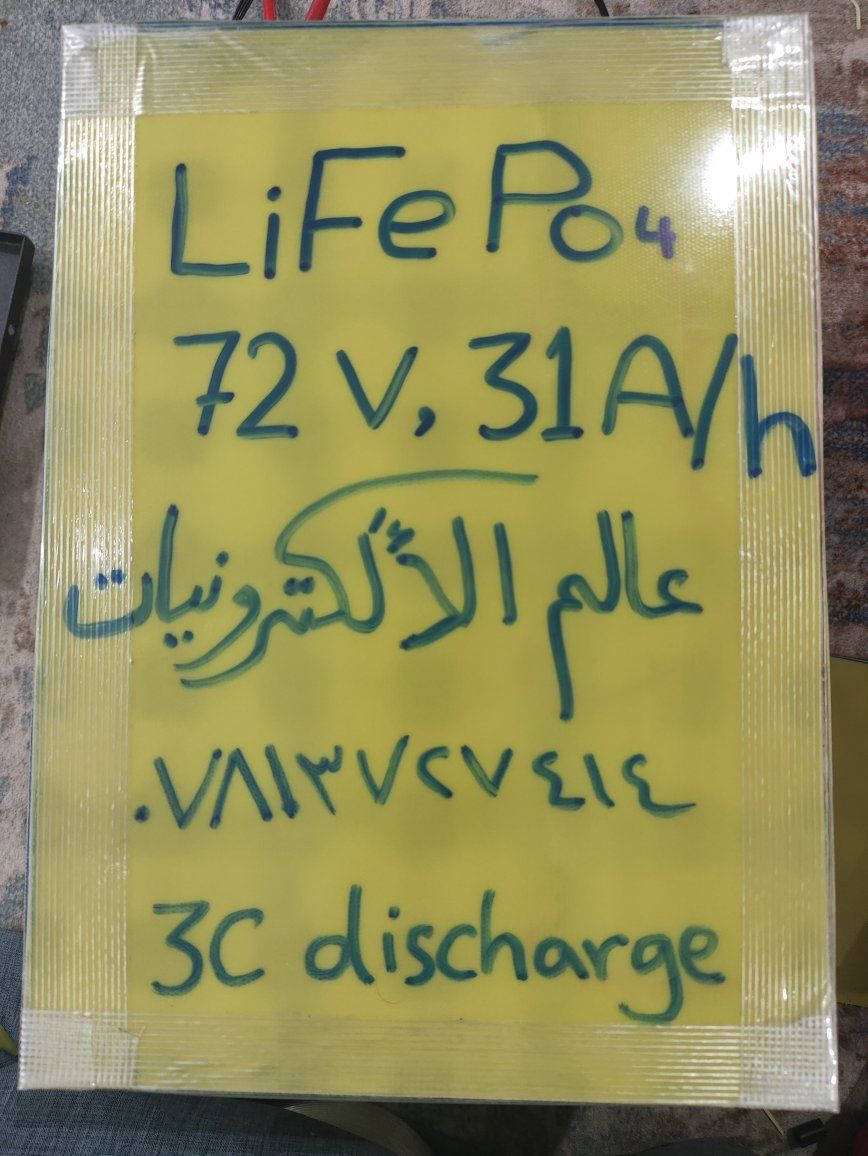 LiFePo4
72 V, 31 A/h
عالم الألكترونيات
٠٧٨١٣٧٢٧٤١٤
3C discharge